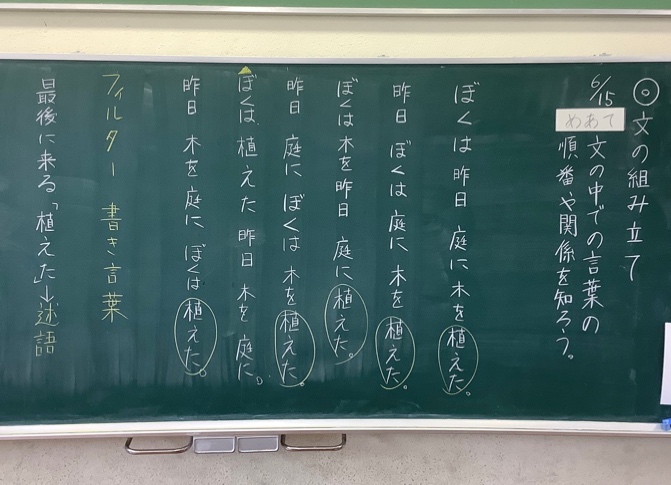 ◎文の組み立て
6/15
めあて
文の中での言葉の
順番や関係を知ろう。
ぼくは 昨日 庭に 木を 植えた。
昨日 ぼくは 庭に 木を 植えた。
ぼくは 木を 昨日 庭に 植えた。
昨日 庭に ぼくは 木を 植えた。
ぼくは 植えた 昨日 木を 庭に。
昨日 木を 庭に ぼくは 植えた。
フィルター 書き言葉
最後に来る「植えた」→述語